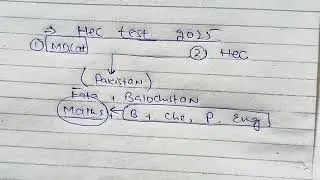 → Hec test 2025
① MDCat ② HEC
(Pakistan)
Fata + Balochistan
Maths ← B + Che, P. Eng